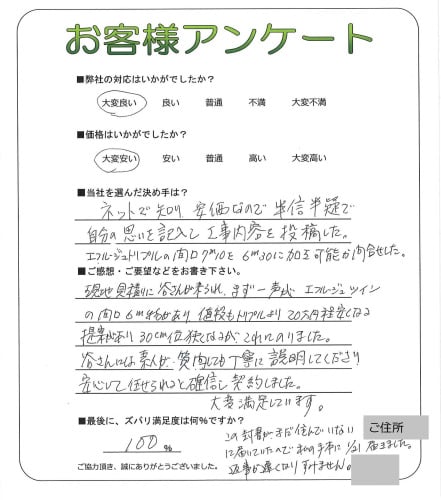 お客様アンケート
■弊社の対応はいかがでしたか?
大変良い 良い 普通 不満 大変不満
■価格はいかがでしたか?
大変安い 安い 普通 高い 大変高い
■当社を選んだ決め手は?
ネットで知り 安価なので 半信半疑で
自分の思いを記入して工事内容を投稿した。
エフルージュトリプルの間口7m10を6m30に加工可能か問合せした。
■ご感想・ご要望などをお書き下さい。
現地見積りに谷さんが来られ、まず一声が エフルージュツイン
の間口6m も有り 値段もトリプルより20万程安くなる
提案があり 30cm位狭くなるが これにのりました。
谷さんには素人 質問しても丁寧に説明してくださり
安心して任せられると確信し契約しました。
大変満足しています。
■最後に、ズバリ満足度は何%ですか?
100%
ご協力頂き、誠にありがとうございました。
この封書がまだ住んでいない
に届いていたので 私の手元に 1/21 届きました。
返事が遅くなりすみません。
ご住所